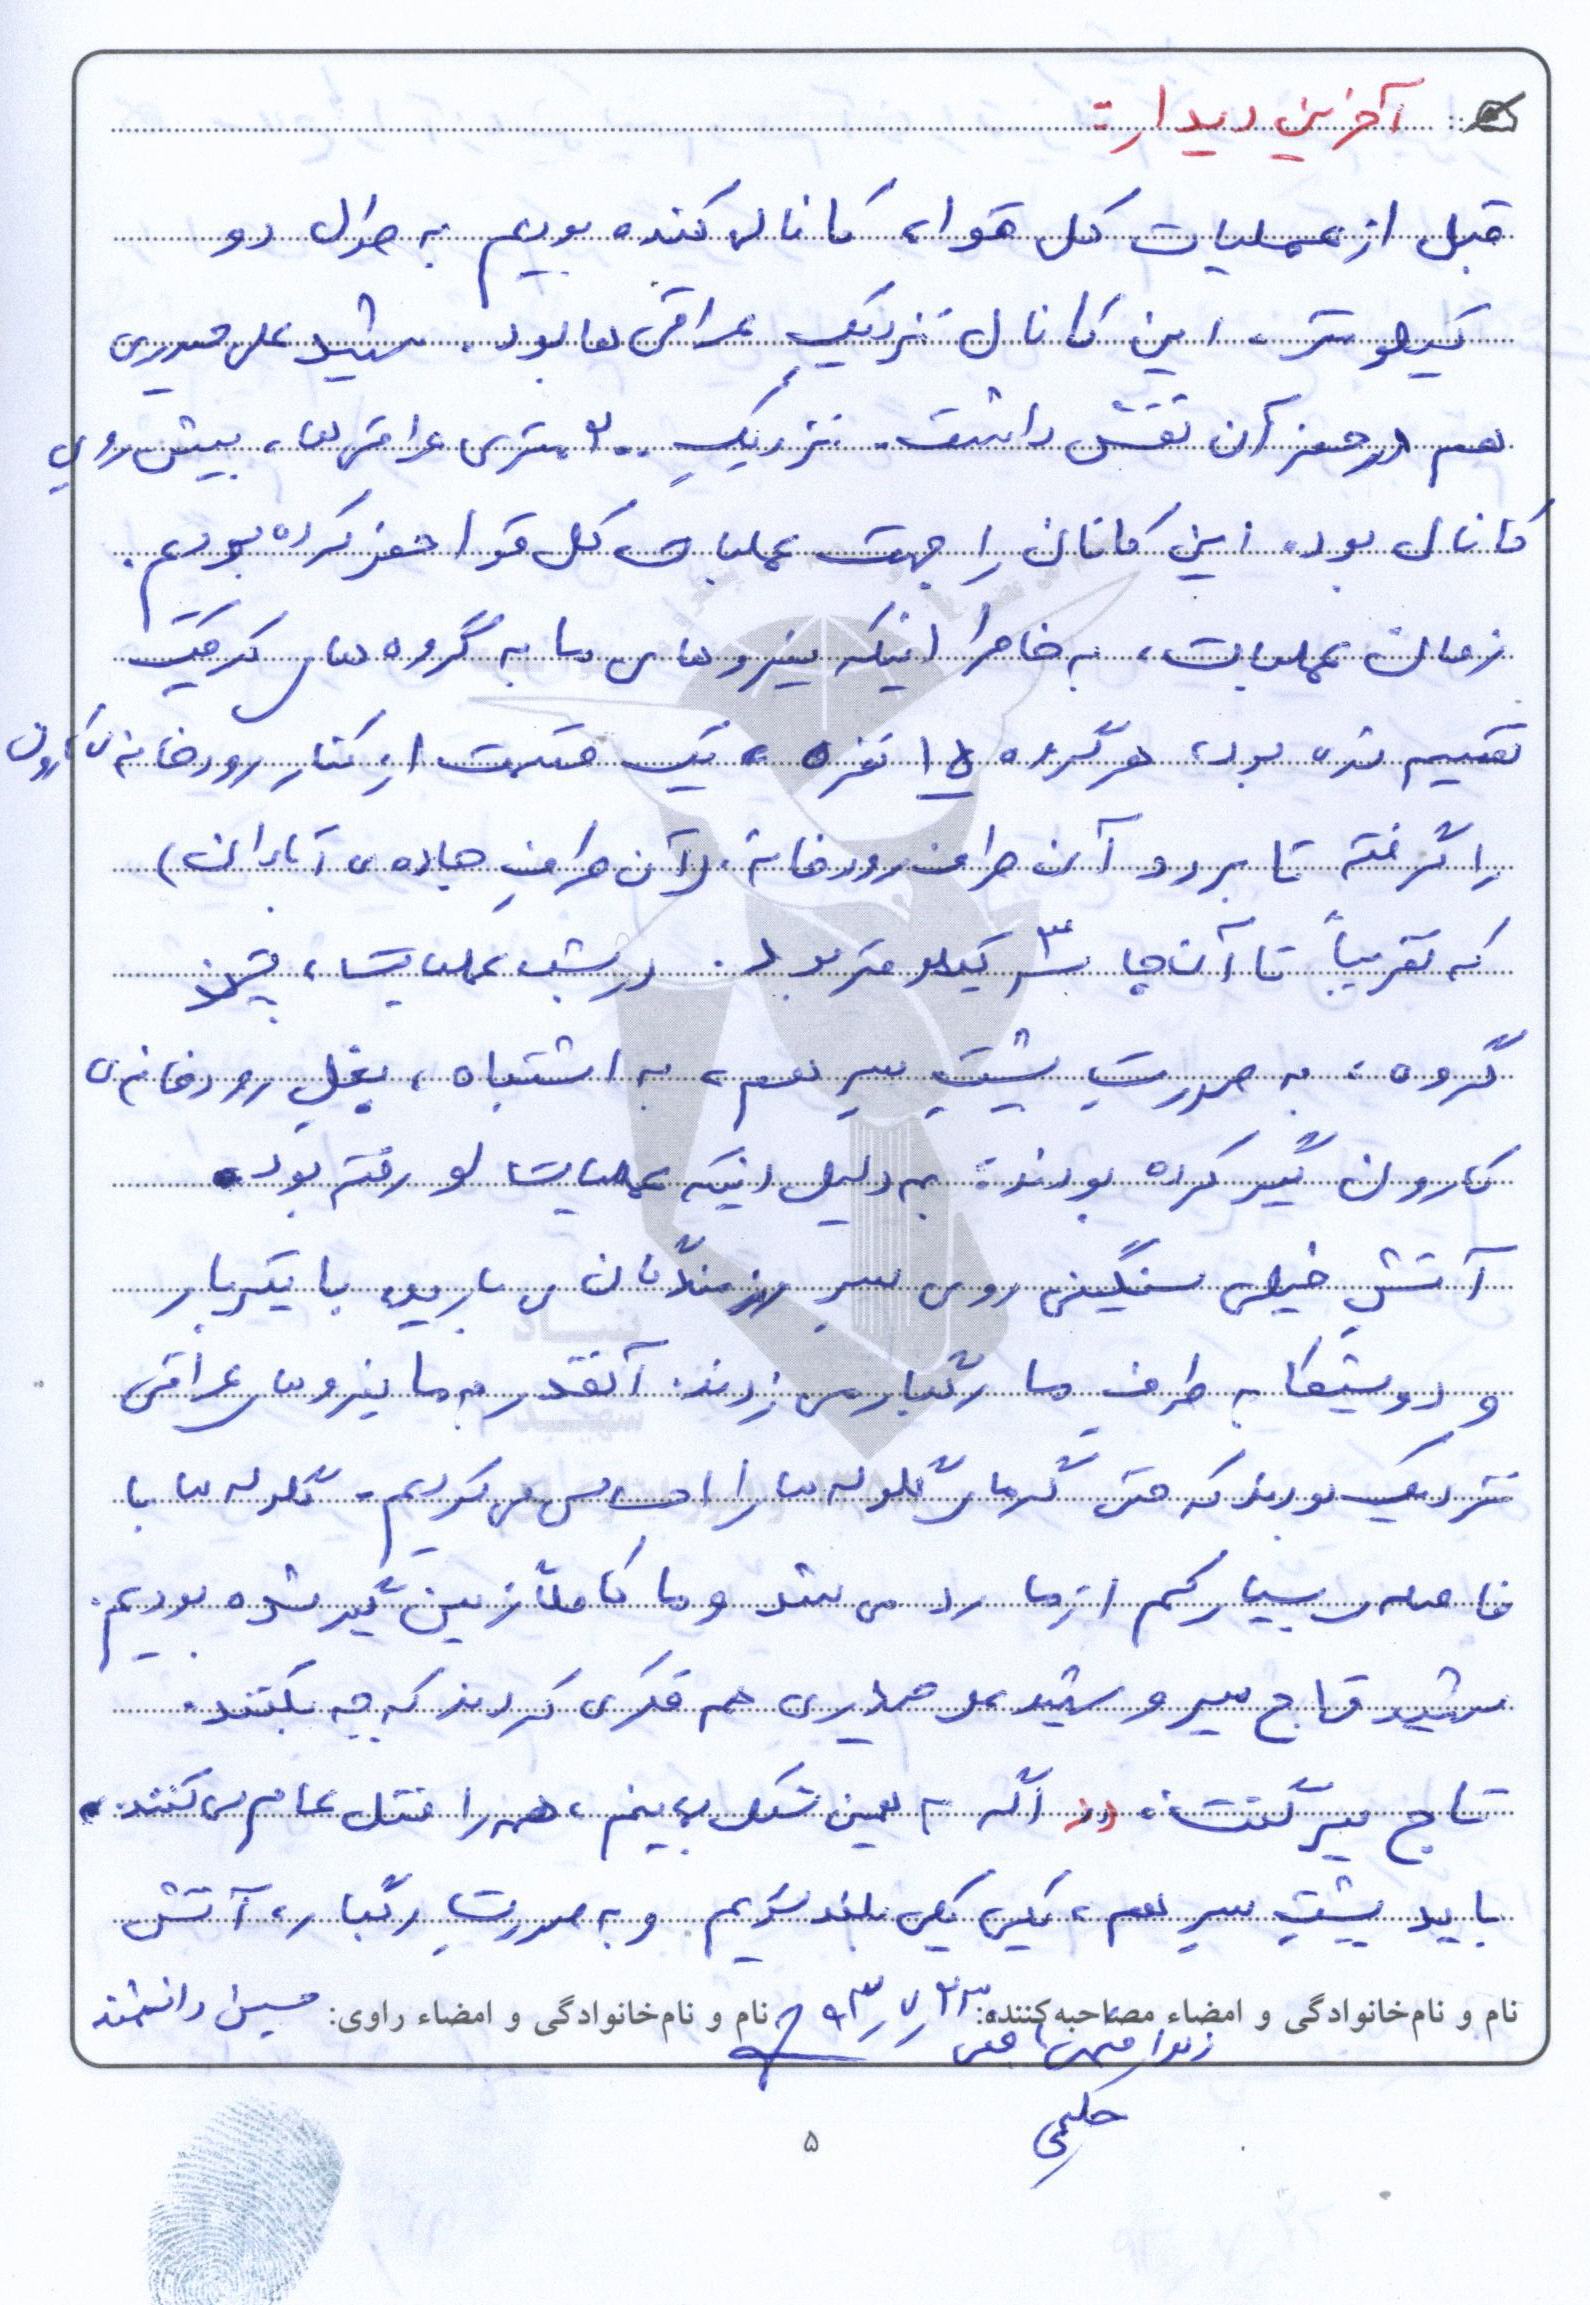 آخرین دیدار:
قبل از عملیات کل قوا، کانال کنده بودیم به طول دو
کیلومتر. این کانال نزدیکِ عراقی ها بود. شهید علی حیدری
هم در حفر آن نقش داشت. نزدیکِ ۲۰۰ متری عراقی ها، پیش روی
کانال بود. این کانال را جهت عملیات کل قوا حفر کرده بودیم.
زمان عملیات، به خاطر اینکه نیروهای ما به گروه های کوچک
تقسیم شده بود، هر گروه ۱۵ نفره، یک قسمت از کنار رودخانه ی کارون
را گرفته تا برود آن طرف رودخانه. (آن طرفِ جاده ی آبادان)
که تقریباً تا آن جا ۳ کیلومتر بود. در شب عملیات، چند
گروه، به صورت پشتِ سرِ هم، به اشتباه، بغلِ رودخانه ی
کارون گیر کرده بودند. به دلیل اینکه عملیات لو رفته بود.
آتشِ خیلی سنگینی روی سرِ رزمندگان می بارید. با تیربار
و دوشیکا به طرفِ ما رگبار می زدند. آنقدر به ما نیروی عراقی
نزدیک بودند که حتی گرمای گلوله ها را احساس می کردیم. گلوله ها با
فاصله ی بسیار کم از ما رد می شد و ما کاملاً زمین گیر شده بودیم.
شهید تاج میر و شهید علی حیدری هم فکری کردند که چه بکنند.
تاج میر گفت: اگر به همین شکل بمانیم، همه را قتل عام می کنند.
باید پشتِ سرِ هم، یکی یکی بلند شویم و به صورتِ رگبار، آتش
نام و نام خانوادگی و امضاء مصاحبه کننده: ۹۳/۷/۲۳ نام و نام خانوادگی و امضاء راوی: حسین دانشمند
حکیمی
۵